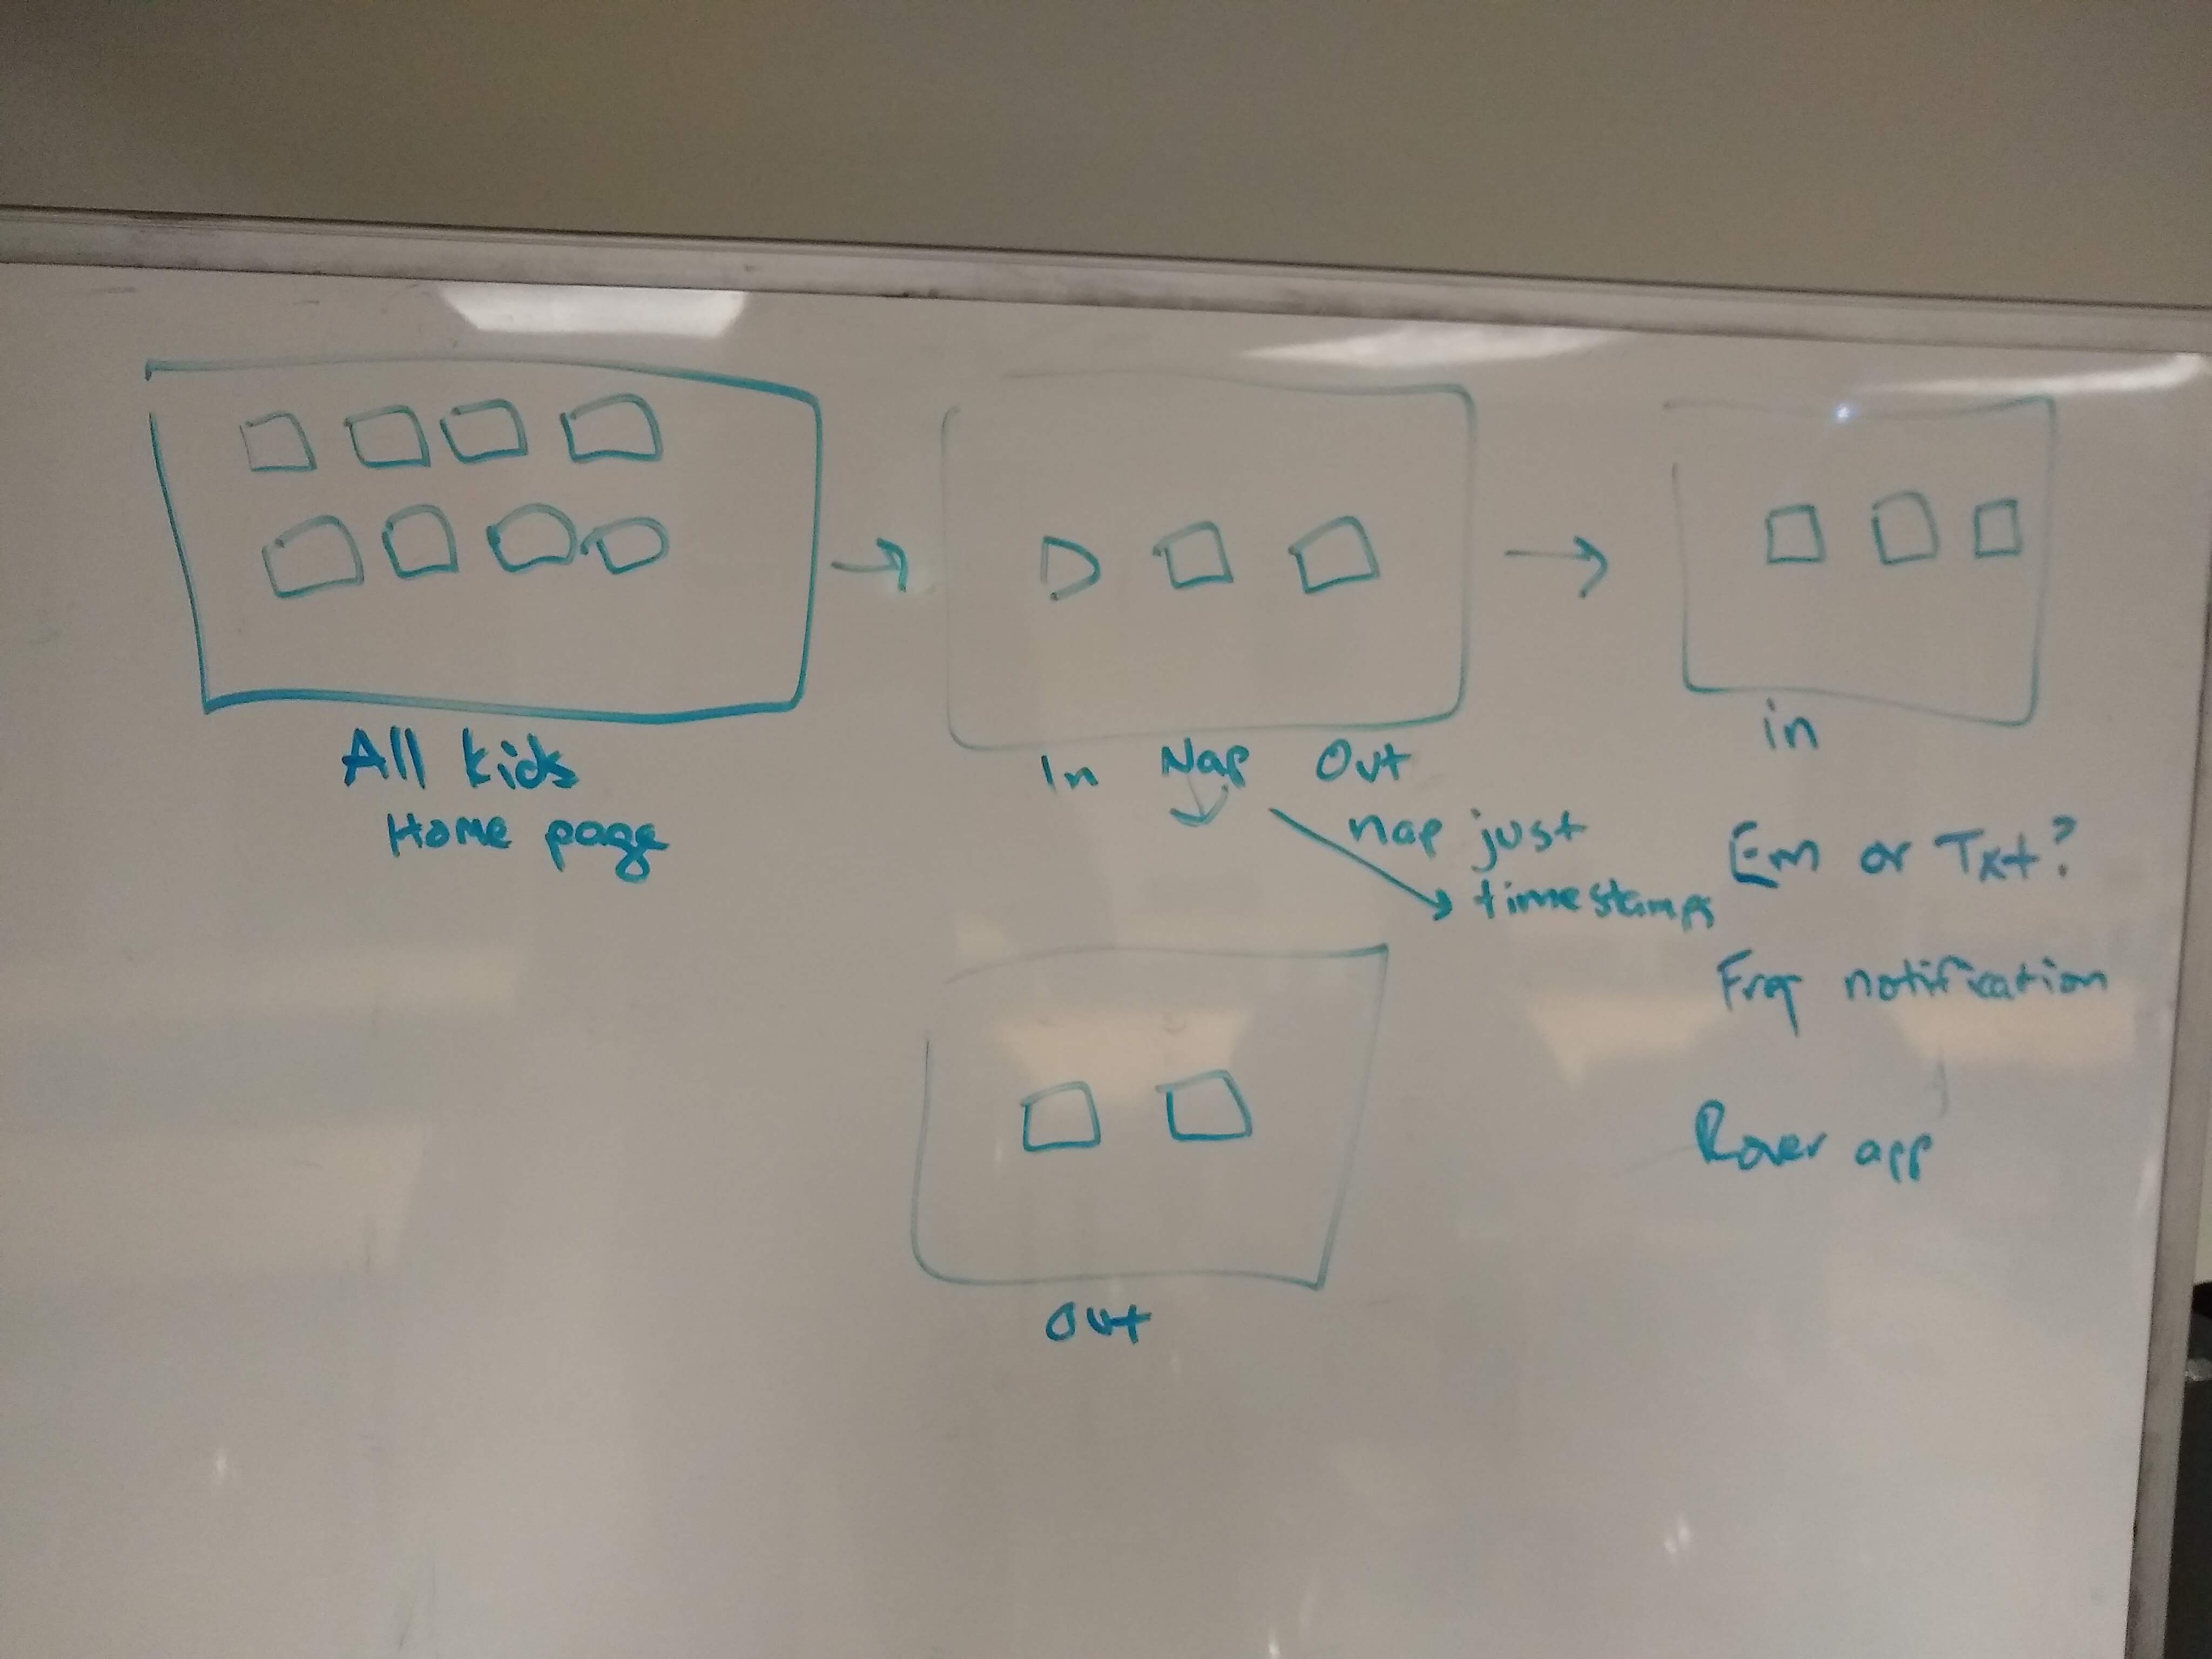 All kids
Home page
In Nap Out
nap just
timestamps
in
Em or Txt?
Frq notification
Rover app
out